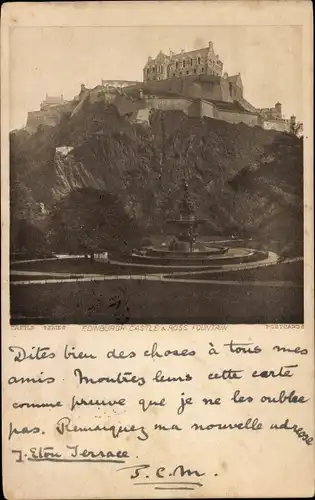 CASTLE SERIES EDINBURGH CASTLE & ROSS FOUNTAIN POSTCARDS
Dites bien des choses à tous mes
amis. Montrez leurs cette carte
comme preuve que je ne les oublee
pas. Remarquez ma nouvelle adresse
7. Eton Terrace.
F.C.M.